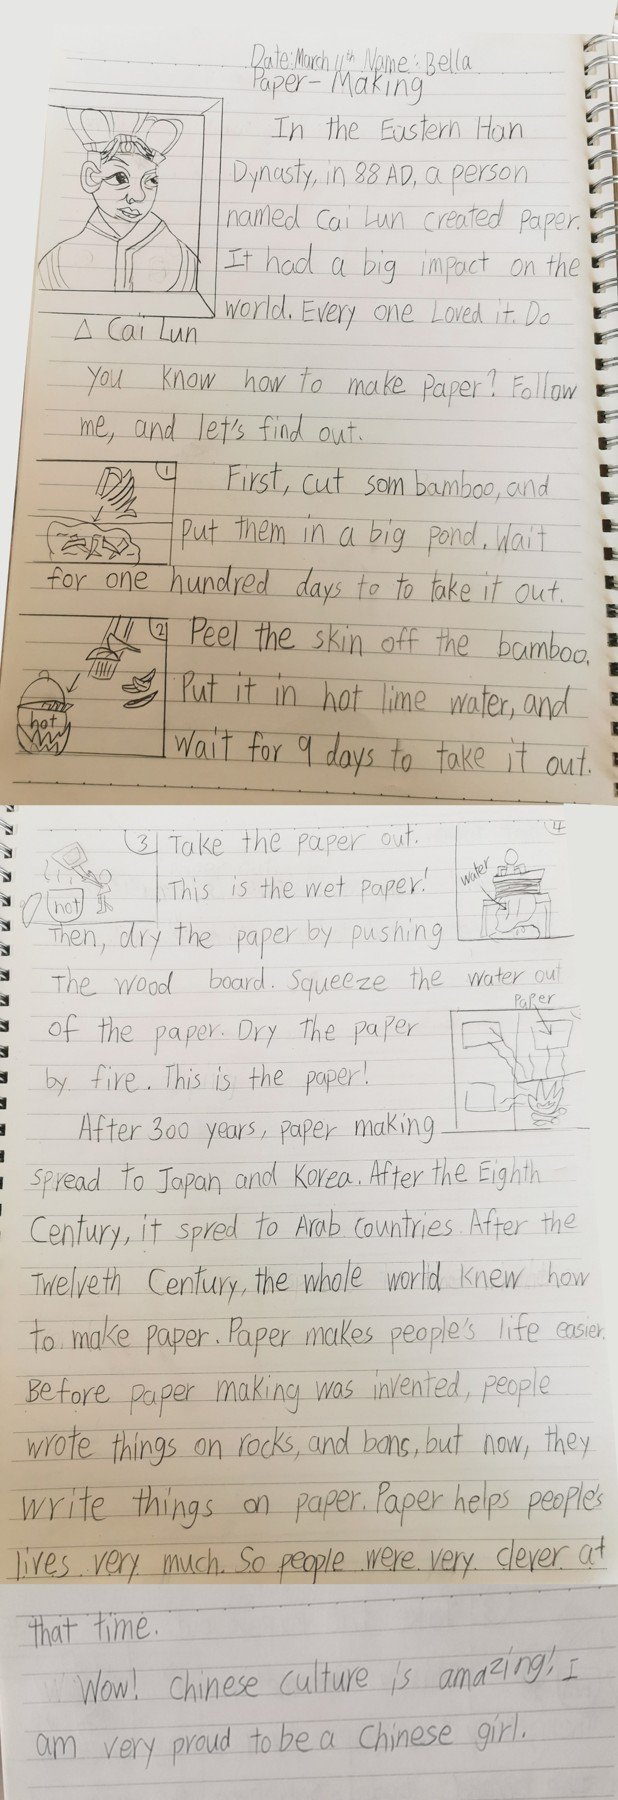 Date: March 11th Name: Bella
Paper-Making
In the Eastern Han
Dynasty, in 88 AD, a person
named Cai Lun created paper.
It had a big impact on the
world. Every one Loved it. Do
△ Cai Lun
you know how to make paper? Follow
me, and let's find out.
1
First, cut som bamboo, and
put them in a big pond. Wait
for one hundred days to to take it out.
2
Peel the skin off the bamboo.
Put it in hot lime water, and
hot
wait for 9 days to take it out.
3
Take the paper out.
4
This is the wet paper!
water
hot
Then, dry the paper by pushing
The wood board. Squeeze the water out
paper
of the paper. Dry the paper
by fire. This is the paper!
After 300 years, paper making
spread to Japan and Korea. After the Eighth
Century, it spred to Arab countries. After the
Twelveth Century, the whole world knew how
to make paper. Paper makes people's life easier.
Before paper making was invented, people
wrote things on rocks, and bons, but now, they
write things on paper. Paper helps people's
lives very much. So people were very clever at
that time.
Wow! Chinese culture is amazing! I
am very proud to be a Chinese girl.